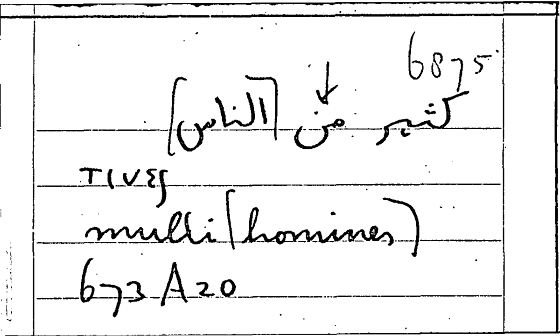 6875
كثير من (الناس)
τινες
multi (homines)
673 A 20